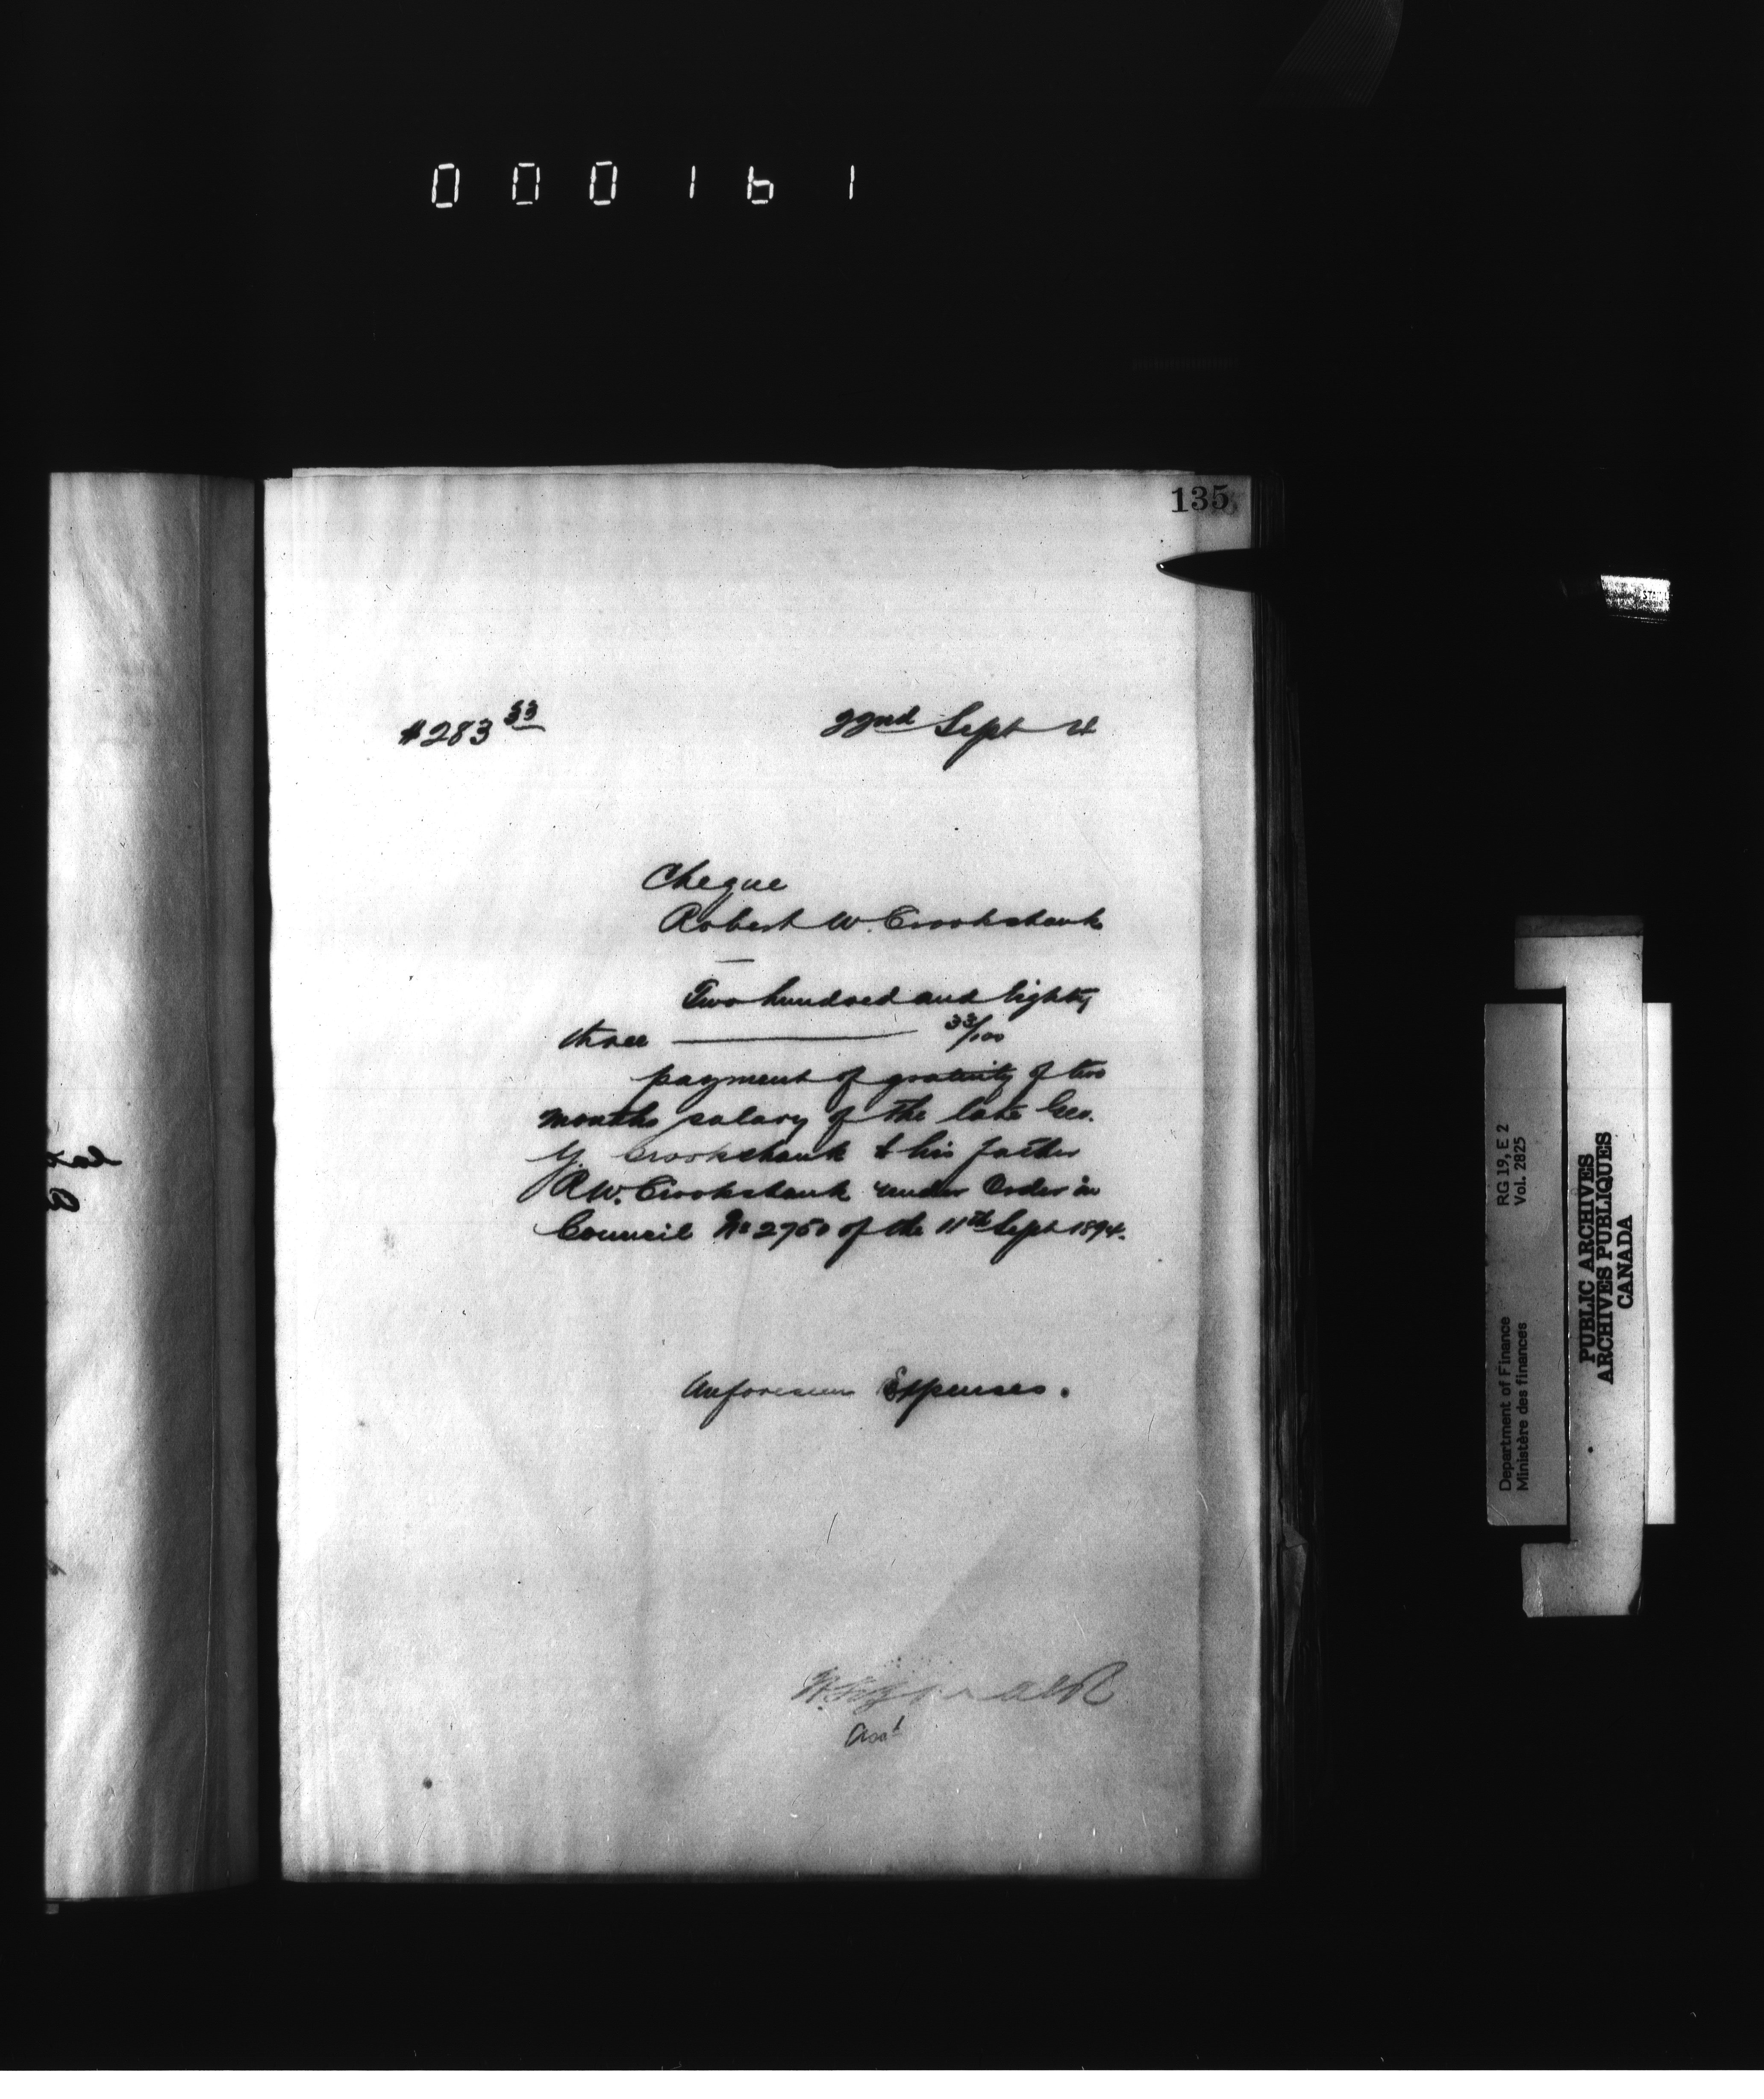 000161
135
$283 33
22nd Sept
Cheque
Robert W. Crookshank
Two hundred and Eighty
three ——— 33/100
payment of gratuity of two
months salary of the late Geo.
Y. Crookshank to his father
R.W. Crookshank under Order in
Council No 2750 of the 11th Sept 1894.
Unforeseen Expenses.
Asst
RG 19, E 2
Vol. 2825
Department of Finance
Ministère des finances
PUBLIC ARCHIVES
ARCHIVES PUBLIQUES
CANADA